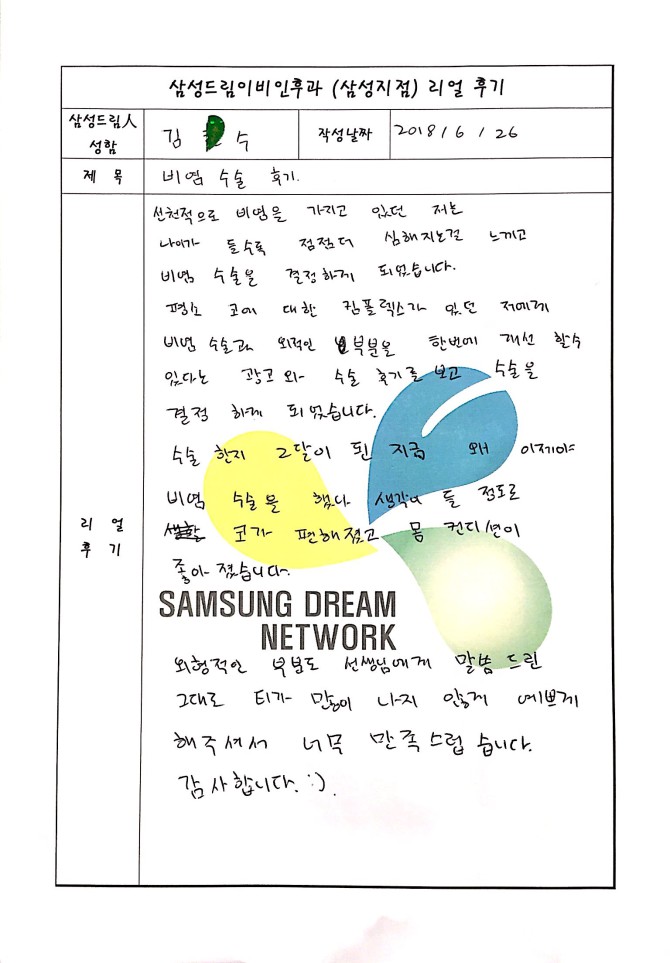 삼성드림이비인후과 (삼성지점) 리얼 후기
삼성드림人
성함
김 수
작성날짜
2018 / 6 / 26
제 목
비염 수술 후기.
리 얼
후 기
선천적으로 비염을 가지고 있던 저는
나이가 들수록 점점더 심해지는걸 느끼고
비염 수술을 결정하게 되었습니다.
평소 코에 대한 컴플렉스가 있던 저에게
비염 수술과 외적인 부분을 한번에 개선 할수
있다는 광고 와 수술 후기를 보고 수술을
결정 하게 되었습니다.
수술 한지 2달이 된 지금 왜 이제야
비염 수술을 했나 생각이 들 정도로
코가 편해졌고 몸 컨디션이
좋아 졌습니다.
SAMSUNG DREAM
NETWORK
외형적인 부분도 선생님에게 말씀 드린
그대로 티가 많이 나지 않게 예쁘게
해주셔서 너무 만족스럽 습니다.
감사합니다. :).